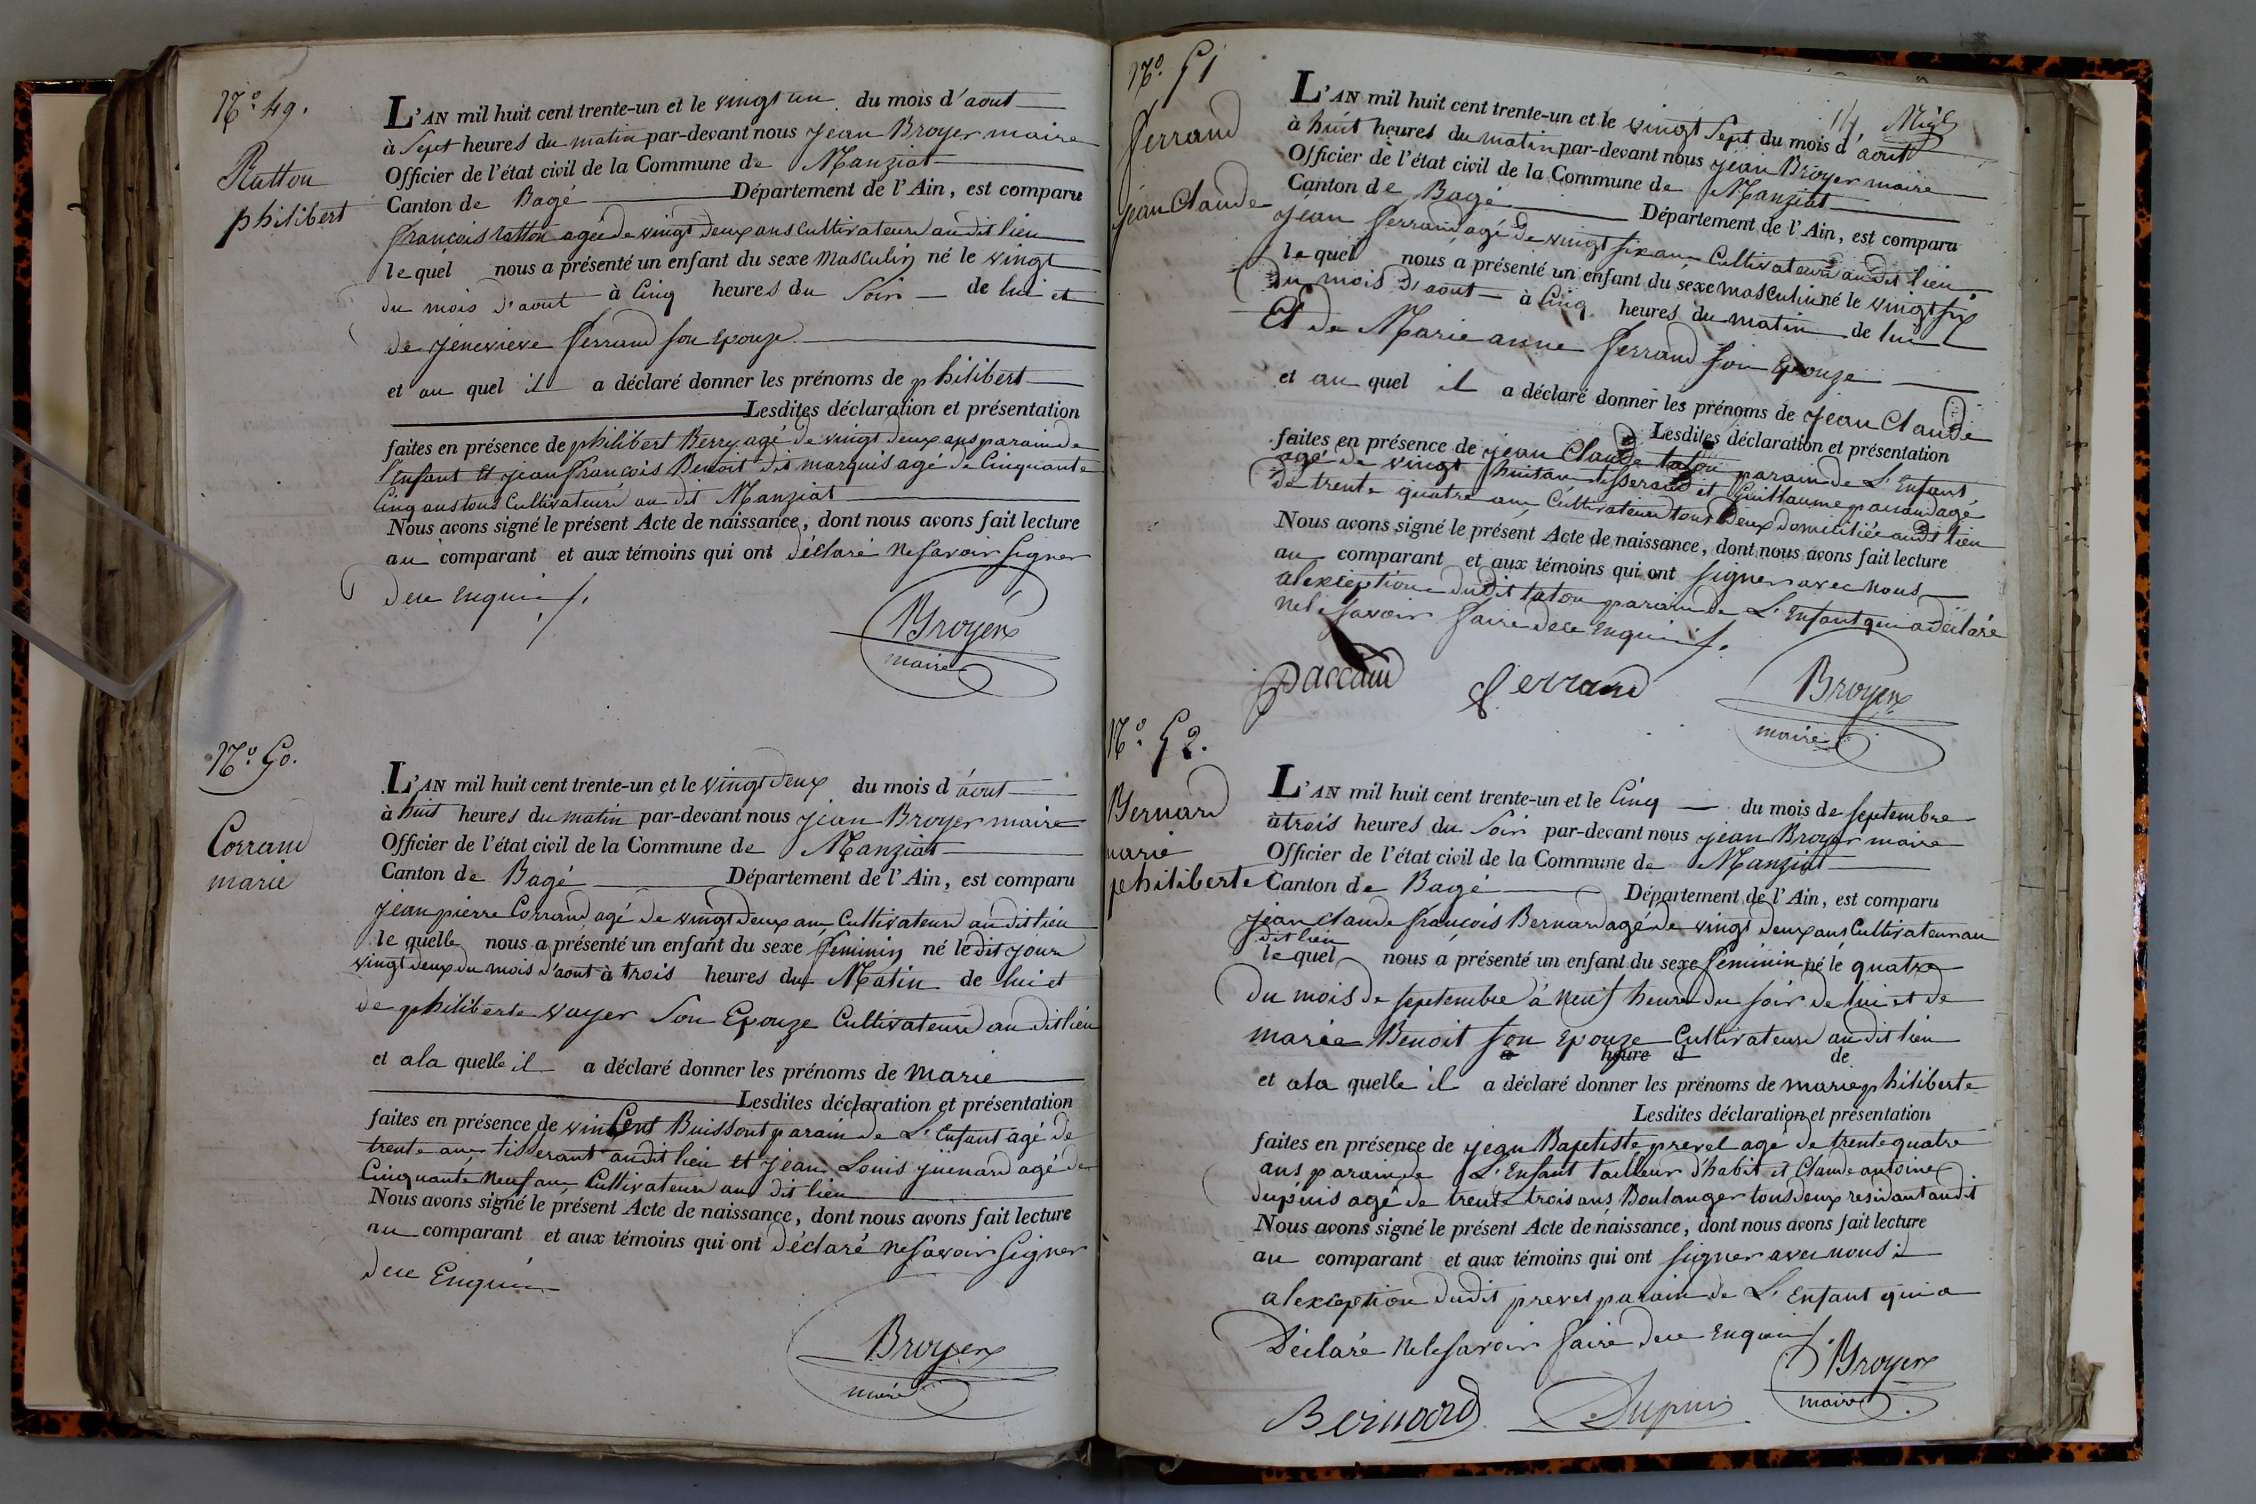 N.º 49.
Ratton
philibert
L'AN mil huit cent trente-un et le vingt un du mois d'aout
à Sept heures du matin par-devant nous jean Broyer maire
Officier de l'état civil de la Commune de Manziat
Canton de Bagé Département de l'Ain, est comparu
françois ratton agée de vingt deux ans Cultivateur audit lieu
le quel nous a présenté un enfant du sexe masculin né le vingt
du mois d'aout à Cinq heures du Soir de lui et
de jeneviève ferrand son Epouze
et au quel il a déclaré donner les prénoms de philibert
Lesdites déclaration et présentation
faites en présence de philibert Berry agé de vingt deux ans parain de
l'enfant et jean françois Benoit dit marquis agé de Cinquante
Cinq ans tous Cultivateurs au dit Manziat
Nous avons signé le présent Acte de naissance, dont nous avons fait lecture
au comparant et aux témoins qui ont déclaré ne Savoir Signer
de ce Enquis
Broyer
maire
N.º 50.
Corrand
marie
L'AN mil huit cent trente-un et le vingt deux du mois d'aout
à huit heures du matin par-devant nous jean Broyer maire
Officier de l'état civil de la Commune de Manziat
Canton de Bagé Département de l'Ain, est comparu
jean pierre Corrand agé de vingt deux ans Cultivateur au dit lieu
le quelle nous a présenté un enfant du sexe feminin né le dit jour
vingt deux du mois d'aout à trois heures du Matin de lui et
de philiberte voyer Son Epouze Cultivateurs au dit lieu
et a la quelle il a déclaré donner les prénoms de marie
Lesdites déclaration et présentation
faites en présence de vincent Buissont parain de L'Enfant agé de
trente ans tisserant audit lieu et jean Louis juenard agé de
Cinquante Neuf ans Cultivateur au dit lieu
Nous avons signé le présent Acte de naissance, dont nous avons fait lecture
au comparant et aux témoins qui ont déclaré ne Savoir Signer
de ce Enquis
Broyer
maire
N.º 51
ferrand
jean Claude
L'AN mil huit cent trente-un et le vingt Sept du mois d'aout
à huit heures du matin par-devant nous jean Broyer maire
Officier de l'état civil de la Commune de Manziat
Canton de Bagé Département de l'Ain, est comparu
jean ferrand agé de vingt six ans Cultivateur audit lieu
le quel nous a présenté un enfant du sexe masculin né le vingt six
du mois d'aout à Cinq heures du matin de lui
Et de Marie anne ferrand son Epouze
et au quel il a déclaré donner les prénoms de jean Claude
Lesdites déclaration et présentation
faites en présence de jean Claude taton parain de L'Enfant
agé de vingt huit ans tisserand et Guillaume paccaud agé
de trente quatre ans Cultivateur tous deux domiciliée audit lieu
Nous avons signé le présent Acte de naissance, dont nous avons fait lecture
au comparant et aux témoins qui ont signer avec nous
a lexception dudit taton parain de L'Enfant qui a declaré
ne le Savoir faire de ce Enquis
paccaud ferrand Broyer
maire
N.º 52.
Bernard
marie
philiberte
L'AN mil huit cent trente-un et le Cinq du mois de septembre
à trois heures du Soir par-devant nous jean Broyer maire
Officier de l'état civil de la Commune de Manziat
Canton de Bagé Département de l'Ain, est comparu
jean claude françois Bernard agé de vingt deux ans Cultivateur au
dit lieu
le quel nous a présenté un enfant du sexe féminin né le quatre
du mois de septembre à neuf heures du soir de lui et de
marie Benoit son Epouze Cultivateurs au dit lieu
à heure d de
et a la quelle il a déclaré donner les prénoms de marie philiberte
Lesdites déclaration et présentation
faites en présence de jean Baptiste prevel agé de trente quatre
ans parain de L'Enfant tailleur d'habit et Claude antoine
dupuis agé de trente trois ans Boulanger tous deux residant audit
Nous avons signé le présent Acte de naissance, dont nous avons fait lecture
au comparant et aux témoins qui ont signer avec nous
a lexception dudit prevel parain de L'Enfant qui a
Déclaré Ne le Savoir faire de ce Enquis
Broyer
maire
Bernard Dupuis